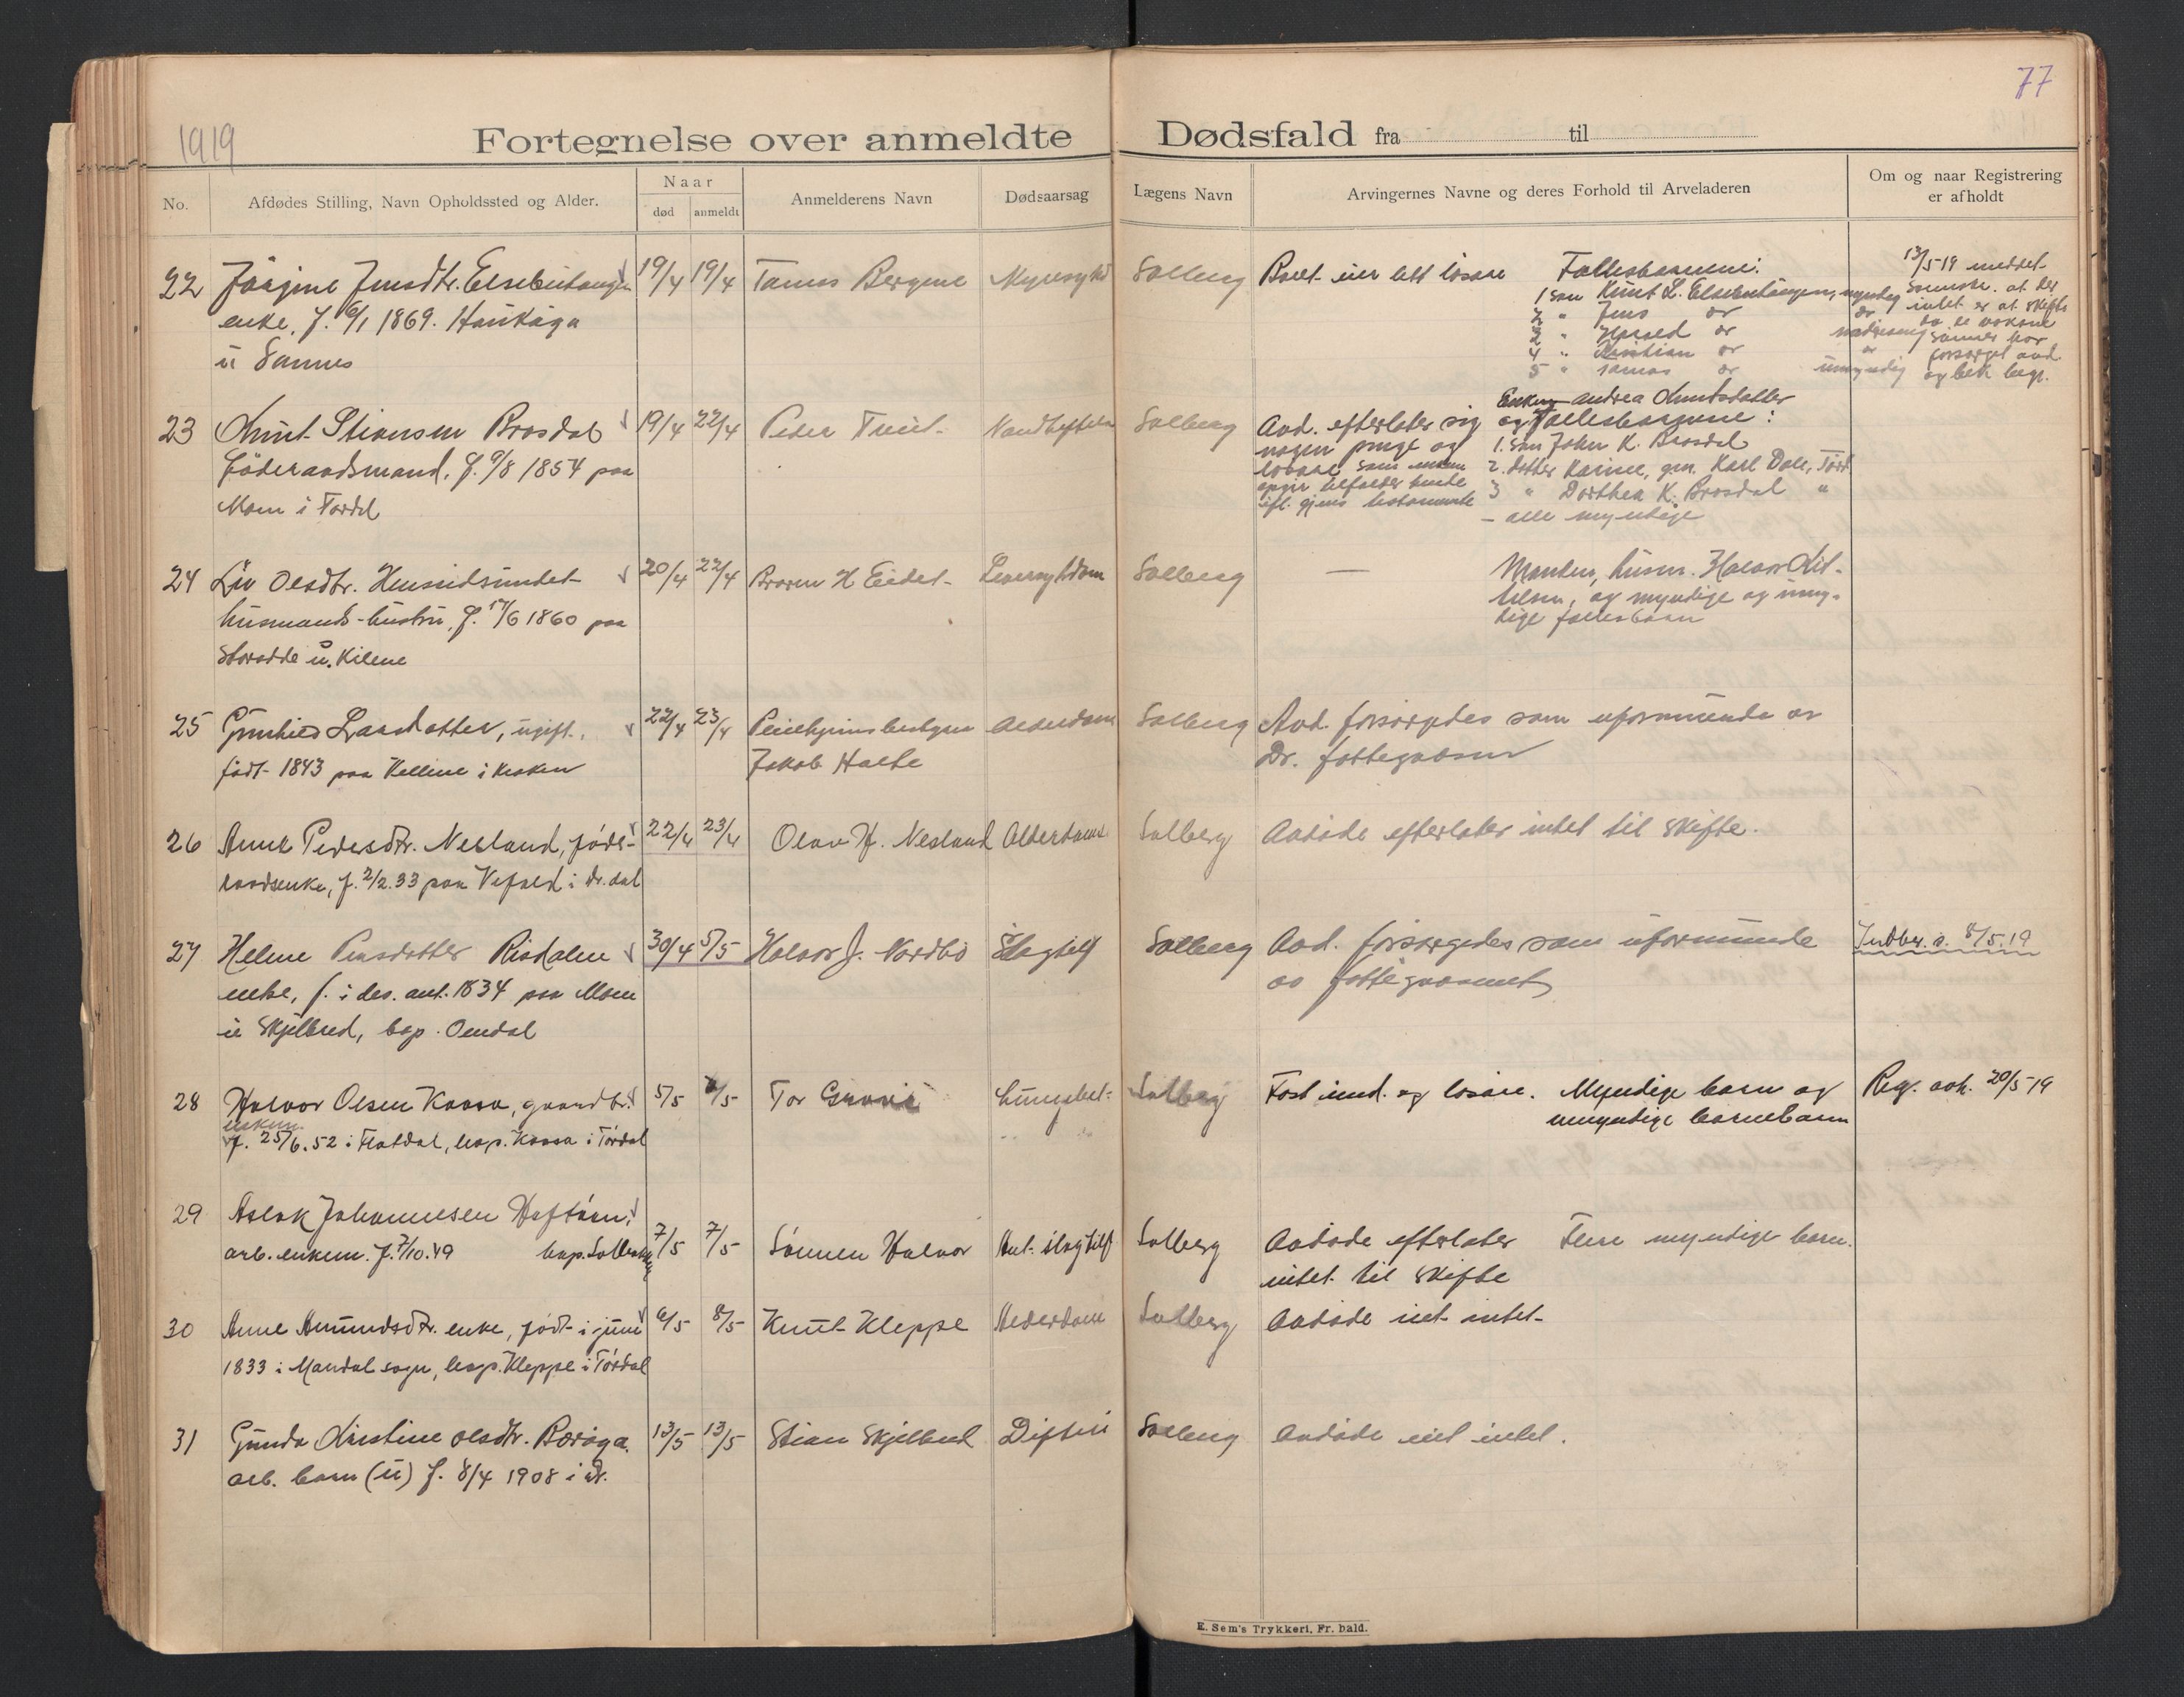 77
1919
Fortegnelse over anmeldte Dødsfald fra til
No.
Afdødes Stilling, Navn Opholdssted og Alder.
Naar
død
anmeldt
Anmelderens Navn
Dødsaarsag
Lægens Navn
Arvingernes Navne og deres Forhold til Arveladeren
Om og naar Registrering
er afholdt
22 Jørgine Jensdtr.
enke, f. 6/1 1869.
u Sannes
19/4 19/4 Tarres Bergene Nyresykd Solberg
Boet eier litt løsøre
Fællesbarnene:
1 søn Knut L. myndig
2 " Jens or
3 " Harald or
4 " Kristian or
5 " or umyndig
13/5 19 meddelt
at der
intet er at skifte
da de voksne
sønner har
forsørget avd.
og bek. begr.
23 Knut Stiansen Brosdal
føderaadsmand, f. 9/8 1854 paa
Moen i Tørdal
19/4 22/4 Peder Tveit Solberg
Avd. efterlater sig
nogen penge og
løsøre som
Enken Andrea Knutsdatter
og Fællesbarnene:
1. søn John K. Brosdal
2. datter Karine, gm. Karl Dale, Tørd.
3 " Dorthea K. Brosdal "
- alle myndige
24 Liv Olsdtr. Henseidsundet
husmands-hustru, f. 17/6 1860 paa
Storodde u. Kilene
20/4 22/4 Broren H Eidet Leversykdom Solberg
—
Manden, husm. Halvor Kit-
tilsen, og myndige og umyn-
dige fællesbarn
25 Gunhild Larsdatter, ugift,
født 1843 paa
22/4 23/4 Pleiehjemsbestyrer
Jakob Halte
Alderdom Solberg
Avd. forsørgedes som uformuende av
Dr. fattigvæsen
26 Anne Pedersdtr. Nesland, føde-
raadsenke, f. 2/2.33 paa Vefald i Dr.dal
22/4 23/4 Olav H. Nesland Alderdoms Solberg
Avdøde efterlater intet til skifte.
27 Helene Jensdatter Risdalen
enke, f. i des. ant. 1834 paa Moen
u Skjelbred, bop. Omdal
30/4 5/5 Halvor J. Nordbø Slagtilf Solberg
Avd. forsørgedes som uformuende
av fattigvæsenet
Indber. s. 8/5.19
28 Halvor Olsen Kaasa, gaardbr.
enkem.
f. 25/6.52 i Flatdal, bop. Kaasa i Tørdal
5/5 6/5 Tor Gravi Lungebet- Solberg
Fast eiend. og løsøre. Myndige barn og
umyndige barnebarn
Reg. avh. 20/5 19
29 Aslak Johannesen
arb. enkem. f. 7/10.49
7/5 7/5 Sønnen Halvor Ant. slagtilf Solberg
Avdøde efterlater
intet til skifte
Flere myndige barn.
30 Anne Amundsdtr. enke, født i juni
1833 i Mandal sogn, bop. Kleppe i Tørdal
6/5 8/5 Knut Kleppe Alderdom Solberg
Avdøde eiet intet
31 Gunda Kristine Olsdtr. Borøga.
arb. barn (u) f. 8/4 1908 i Dr.
13/5 13/5 Stian Skjelbred Difteri Solberg
Avdøde eiet intet.
E. Sem's Trykkeri, Fr.hald.